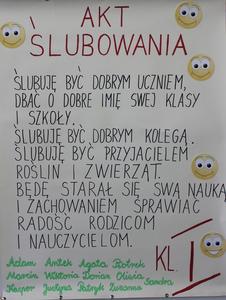 AKT
ŚLUBOWANIA
ŚLUBUJĘ BYĆ DOBRYM UCZNIEM,
DBAĆ O DOBRE IMIĘ SWEJ KLASY
I SZKOŁY.
ŚLUBUJĘ BYĆ DOBRYM KOLEGĄ.
ŚLUBUJĘ BYĆ PRZYJACIELEM
ROŚLIN I ZWIERZĄT.
BĘDĘ STARAŁ SIĘ SWĄ NAUKĄ
I ZACHOWANIEM SPRAWIAĆ
RADOŚĆ RODZICOM
I NAUCZYCIELOM.
KL. I
Adam Antek Agata Piotrek
Marcin Wiktoria Dorian Oliwia Sandra
Kacper Justyna Patryk Zuzanna